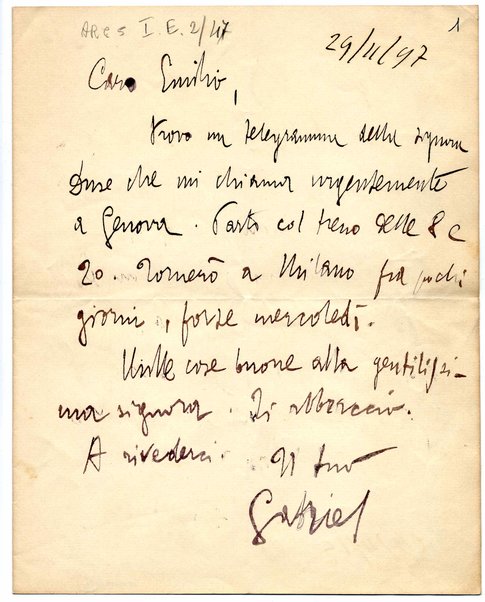 ARC 5 I. E. 2/47
1
29/11/97
Caro Emilio,
trovo un telegramma della signora
Duse che mi chiama urgentemente
a Genova. Parto col treno delle 8 e
20. Tornerò a Milano fra pochi
giorni, forse mercoledì.
Mille cose buone alla gentilissi-
ma signora. Ti abbraccio.
A rivederci. Il tuo
Gabriel